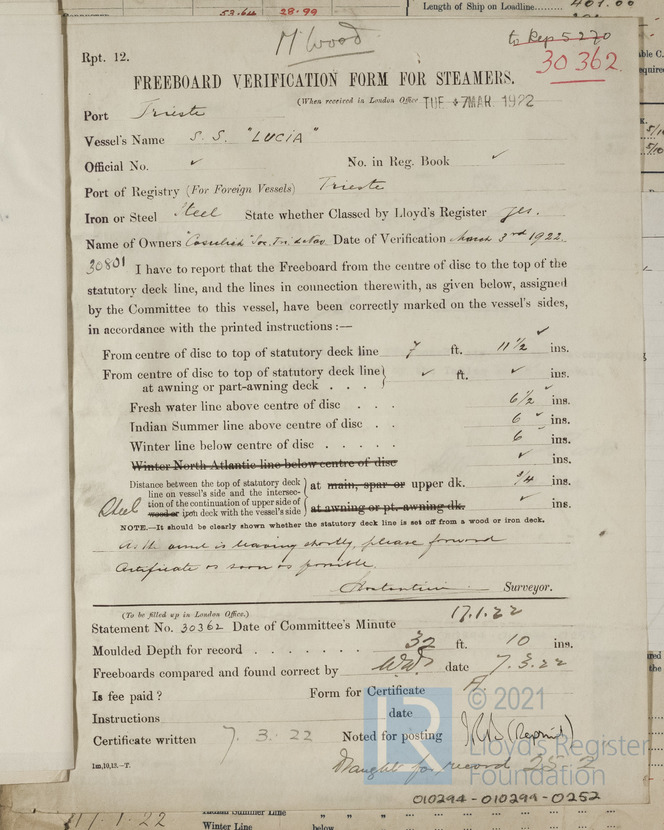 53.64 28.99
Length of Ship on Loadline........ 401.00
M Wood
to Rep 5270
Rpt. 12.
30362
FREEBOARD VERIFICATION FORM FOR STEAMERS.
(When received in London Office TUE 7 MAR. 1922
Port Trieste
Vessel's Name S.S. "LUCIA"
Official No. ✓ No. in Reg. Book ✓
Port of Registry (For Foreign Vessels) Trieste
Iron or Steel Steel State whether Classed by Lloyd's Register yes.
Name of Owners "Cosulich" Soc. Tri. de Nav. Date of Verification March 3rd 1922.
30801 I have to report that the Freeboard from the centre of disc to the top of the
statutory deck line, and the lines in connection therewith, as given below, assigned
by the Committee to this vessel, have been correctly marked on the vessel's sides,
in accordance with the printed instructions :—
From centre of disc to top of statutory deck line 7 ft. 11 1/2 ✓ ins.
From centre of disc to top of statutory deck line } ✓ ft. ✓ ins.
at awning or part-awning deck . . .
Fresh water line above centre of disc . . . 6 1/2 ✓ ins.
Indian Summer line above centre of disc . . 6 ✓ ins.
Winter line below centre of disc . . . . . 6 ✓ ins.
Winter North Atlantic line below centre of disc ✓ ins.
Distance between the top of statutory deck
line on vessel's side and the intersec- } at main, spar or upper dk. 1/4 ins.
tion of the continuation of upper side of
Steel wood or iron deck with the vessel's side } at awning or pt. awning dk. ✓ ins.
NOTE.—It should be clearly shown whether the statutory deck line is set off from a wood or iron deck.
As the vessel is leaving shortly, please forward
Certificate as soon as possible.
Surveyor.
(To be filled up in London Office.)
Statement No. 30362 Date of Committee's Minute 17.1.22
Moulded Depth for record . . . . . . . 32 ft. 10 ins.
Freeboards compared and found correct by date 7.3.22
Is fee paid ? Form for Certificate
Instructions date
Certificate written 7.3.22 Noted for posting (Reprint)
1m,10,13.—T.
for record 25.2
© 2021
Lloyd's Register
Foundation
010294-010299-0252
17.1.22
Indian Summer Line
Winter Line below